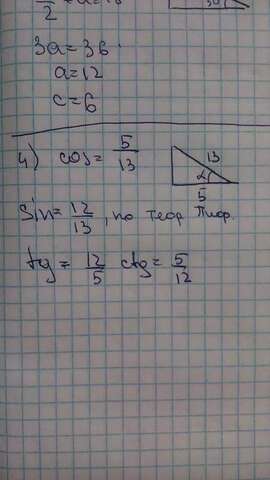 2
30
3a=36
a=12
c=6
4) cos= 5/13
13
α
5
sin= 12/13, по теор. Пиф.
tg = 12/5 ctg= 5/12